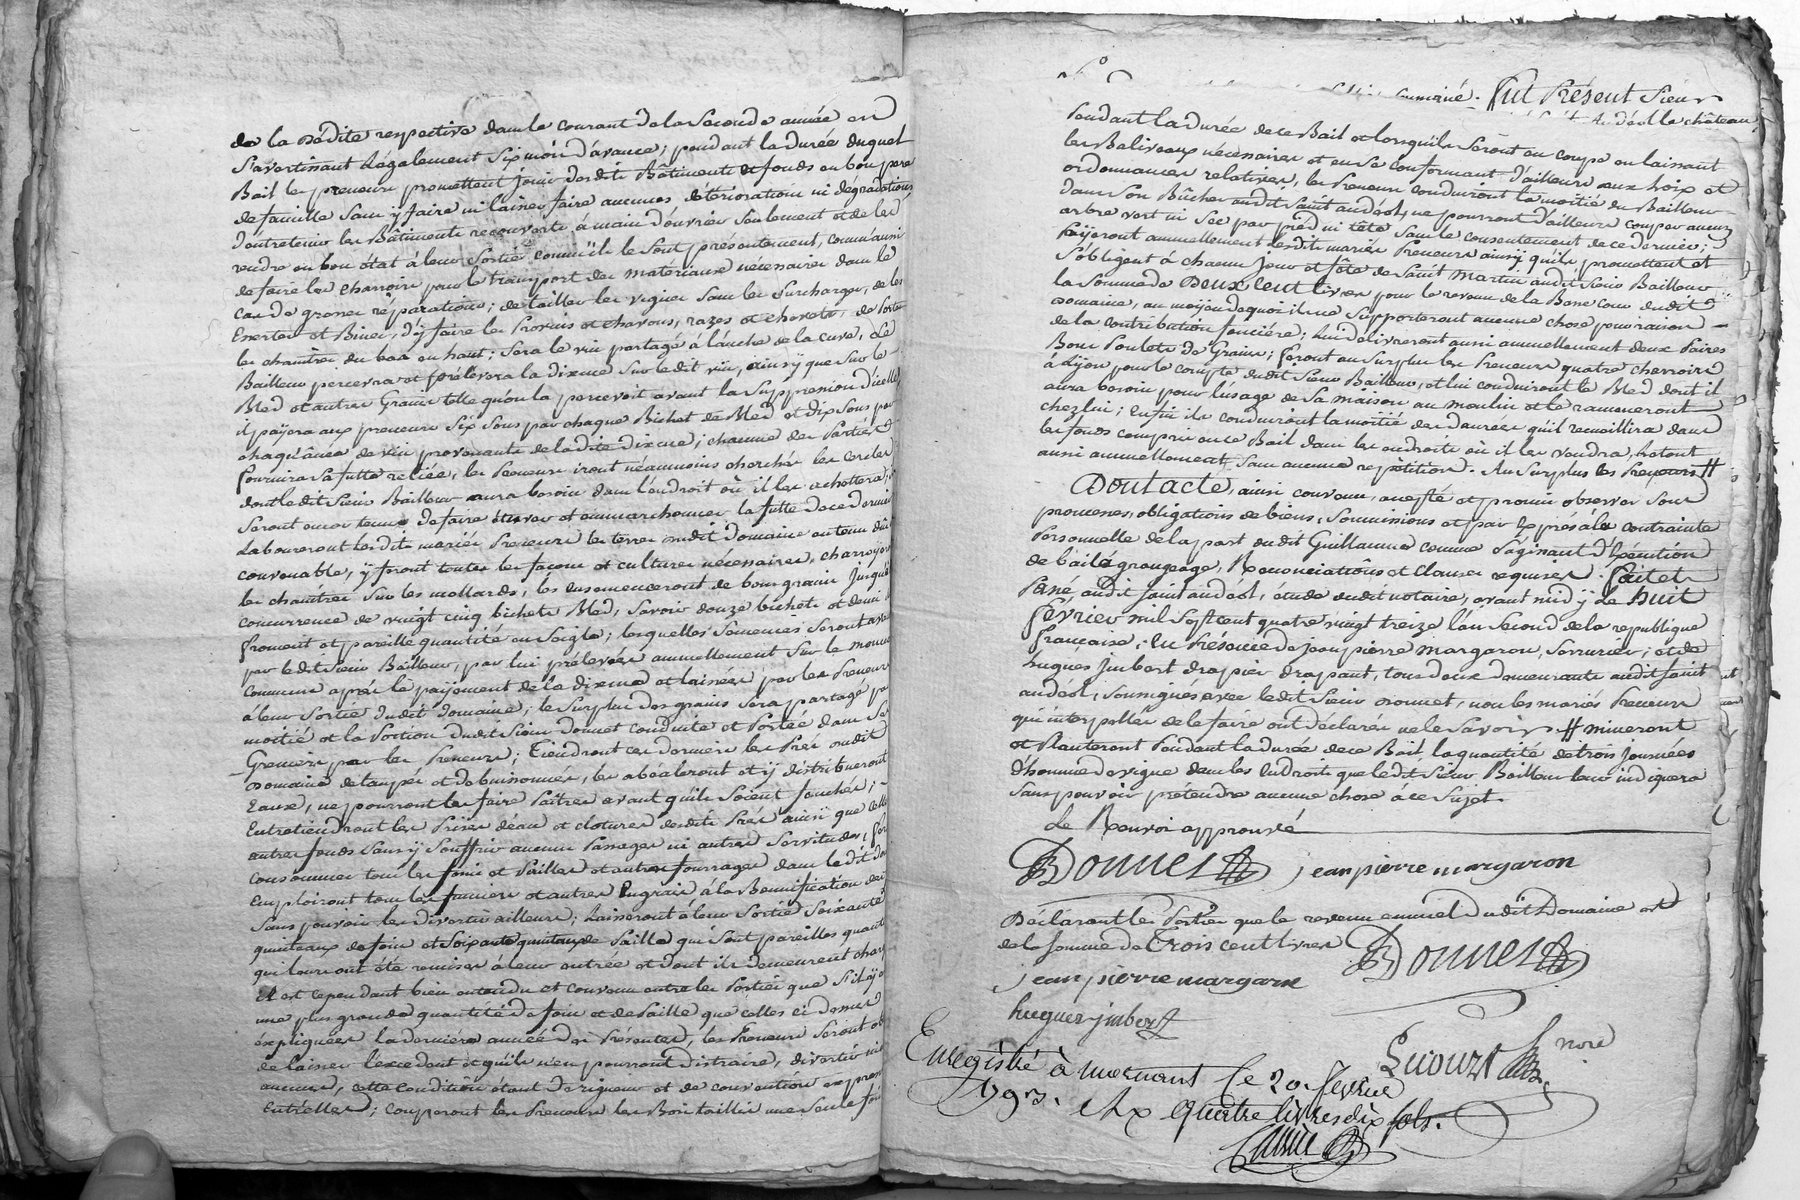 de la dédite respective dans le courant de la Seconde année en
S'avertissant Légalement Six mois d'avance; pendant la durée duquel
Bail les preneurs promettent jouir desdits Bâtiments et fonds en bon pere
de famille Sans y faire ni laisser faire aucunes détériorations ni dégradations
d'entretenir les Bâtiments recouverts à main d'ouvrier Seulement et de les
rendre en bon état à leur Sortie comme ils le Sont présentement, comm'aussi
de faire les charrois pour le transport des matériaux nécessaires dans le
cas de grosses réparations; de tailler les vignes Sans les Surcharger, de les
Esserter et Biner, d'y faire les Provins et chavons, razes et chevets, de Porter
les chaintres du bas en haut; Sera le vin partagé à l'anche de la cuve, Le
Bailleur percevra et prélévera la dixme Sur ledit vin, ainsy que Sur le
Bled et autres Grains telle qu'on la percevoit avant la Suppression d'icelle
il payera aux preneurs Six Sous par chaque Bichet de Bled et dix Sous par
chaqu'ânée de vin provenante de la dite dixme; chacune des Parties
fournira Sa futte reliée, les Preneurs iront néanmoins chercher les cercles
dont ledit Sieur Bailleur aura besoin dans l'endroit où il les achettera,
Seront encor tenus de faire étuver et emmarchonner la futte de ce dernier
Laboureront lesdits mariés Preneurs les terres dudit Domaine en tems dû et
convenable, y feront toutes les façons et cultures nécessaires, charroyeront
les chaintres Sur les mollards, les ensemenceront de bons grains jusqu'à
concurrence de vingt cinq bichets Bled, Savoir douze bichets et demi
froment et pareille quantité en Seigle; lesquelles Semences Seront
par ledit Sieur Bailleur, par lui prélevées annuellement Sur le monceau
commun après le payement de la dixme et laissées par les Preneurs
à leur Sortie dudit domaine; le Surplus des grains Sera partagé par
moitié et la Portion dudit Sieur donnet conduite et Portée dans Ses
Greniers par les Preneurs; Tiendront ces derniers les Prés dudit
Domaine détaupés et débuissonnés, les abéaleront et y distribueront
L'eaux, ne pourront les faire Paîtres avant qu'ils Soient fauchés;
Entretiendront les Prises d'eau et clotures desdits Prés ainsi que celles
autres fonds Sans y Souffrir aucuns Passages ni autres Servitudes;
consommer tous les foins et Pailles et autres fourrages dans ledit
Emploiront tous les fumiers et autres Engrais à la Bonnification
Sans pouvoir les divertir ailleurs; Laisseront à leur Sortie Soixante
quintaux de foin et Soixante quintaux de Paille qui Sont pareilles
qui leurs ont été remises à leur entrée et dont ils demeurent
Il est cependant bien entendu et convenu entre les Parties que S'il y
une plus grande quantité de foin et de Paille que celles ci dessus
expliquées la derniere année des Présentes, les Preneurs Seront
de laisser l'excédent et qu'ils n'en pourront distraire, divertir
aucune, cette condition étant de rigueur et de convention
entr'elles; couperont les Preneurs les Bois taillis une Seule fois
fut Présent Sieur
Andéol le château
Pendant la durée de ce Bail et lorsqu'ils Seront en coupe en laissant
les Baliveaux nécessaires et en se conformant d'ailleurs aux Loix et
ordonnances relatives, les Preneurs conduiront la moitié du Bailleur
dans Son Bûcher audit Saint andéol, ne pourront d'ailleurs couper aucun
arbre vert ni Sec par pied ni tête Sans le consentement de ce dernier;
Payeront annuellement lesdits mariés Preneurs ainsy qu'ils promettent et
S'obligent à chacun jour et fête de Saint martin audit Sieur Bailleur
la Somme de Deux Cent livres pour le revenu de la Basse cour dudit
Domaine, au moyen de quoi il ne Supporteront aucune chose pour raison
de la contribution fonciére; Lui délivreront aussi annuellement deux Paires
Bons Poulets de Grains; feront au Surplus les Preneurs quatre charrois
à Lyon pour le compte dudit Sieur Bailleur, et lui conduiront le Bled dont il
aura besoin pour l'usage de Sa maison au moulin et le rameneront
chez lui; enfin ils conduiront la moitié des danrées qu'il recueillira dans
les fonds compris en ce Bail dans les endroits où il les voudra,
aussi annuellement Sans aucune repétition. Au Surplus les Preneurs #
Dont acte, ainsi convenu, accepté et promis observer Sous
promesses, obligations de biens, Soumissions et par Exprès à la contrainte
Personnelle de la part dudit Guillaume comme S'agissant d'Exécution
de bail à grangeage, Renonciations et Clauses requises. fait et
Passé audit Saint andéol, étude dudit notaire, avant midy Le huit
février mil Septcent quatre vingt treize l'an Second de la republique
française; En Présence de jean pierre margaron, Serrurier, et de
hugues jmbert drapier drapant, tous deux demeurants audit Saint
andéol, Soussignés avec ledit Sieur donnet, non les mariés Preneurs
qui interpellés de le faire ont déclarés ne le Savoir. # mineront
et Planteront Pendant la durée de ce Bail la quantité de trois journées
d'homme de vigne dans les Endroits que ledit Sieur Bailleur leur indiquera
Sans pouvoir prétendre aucune chose à ce Sujet.
Le Renvoi approuvé
Donnet jean pierre margaron
Déclarant les Parties que le revenu annuel dudit Domaine est
de la Somme de Trois cent livres Donnet
jean pierre margaron
hugues jmbert
Lecourt nore
Enregistré à mornant le 20. fevrier
1793. Rx quatre livres dix sols.